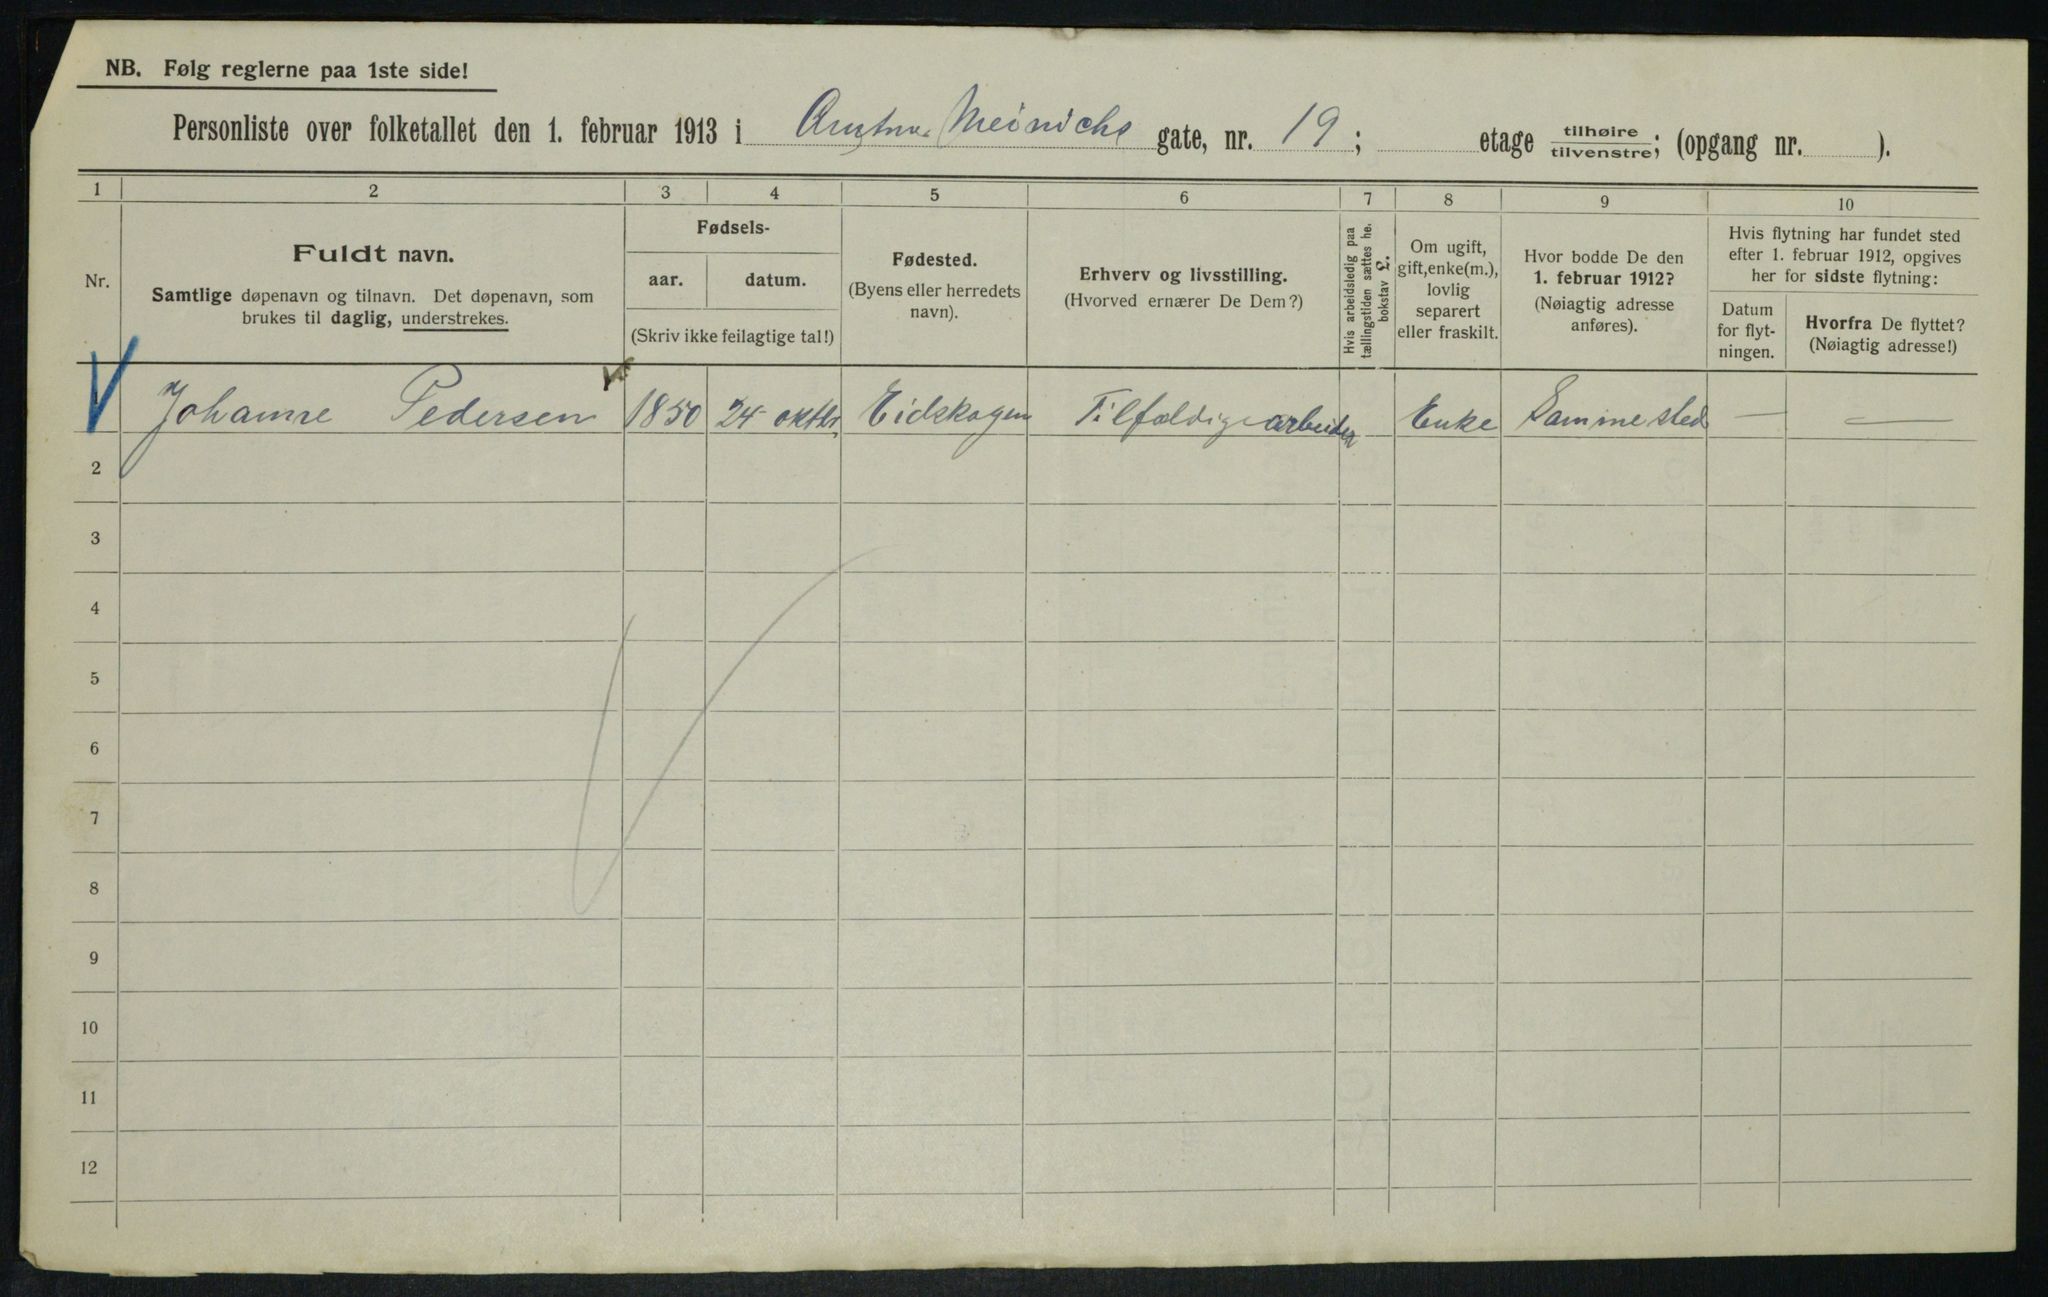 NB. Følg reglerne paa 1ste side!
Personliste over folketallet den 1. februar 1913 i Amtm. Meinichs gate, nr. 19; etage tilhøire/tilvenstre; (opgang nr. ).
1 2 3 4 5 6 7 8 9 10
Nr.
Fuldt navn.
Samtlige døpenavn og tilnavn. Det døpenavn, som
brukes til daglig, understrekes.
Fødsels-
aar. datum.
(Skriv ikke feilagtige tal!)
Fødested.
(Byens eller herredets
navn).
Erhverv og livsstilling.
(Hvorved ernærer De Dem?)
Hvis arbeidsledig paa
tællingstiden sættes he.
bokstav L.
Om ugift,
gift, enke(m.),
lovlig
separert
eller fraskilt.
Hvor bodde De den
1. februar 1912?
(Nøiagtig adresse
anføres).
Hvis flytning har fundet sted
efter 1. februar 1912, opgives
her for sidste flytning:
Datum
for flyt-
ningen.
Hvorfra De flyttet?
(Nøiagtig adresse!)
Johanne Pedersen 1850 24 oktbr. Eidskogen Tilfældigearbeider Enke Sammested — —
2
3
4
5
6
7
8
9
10
11
12